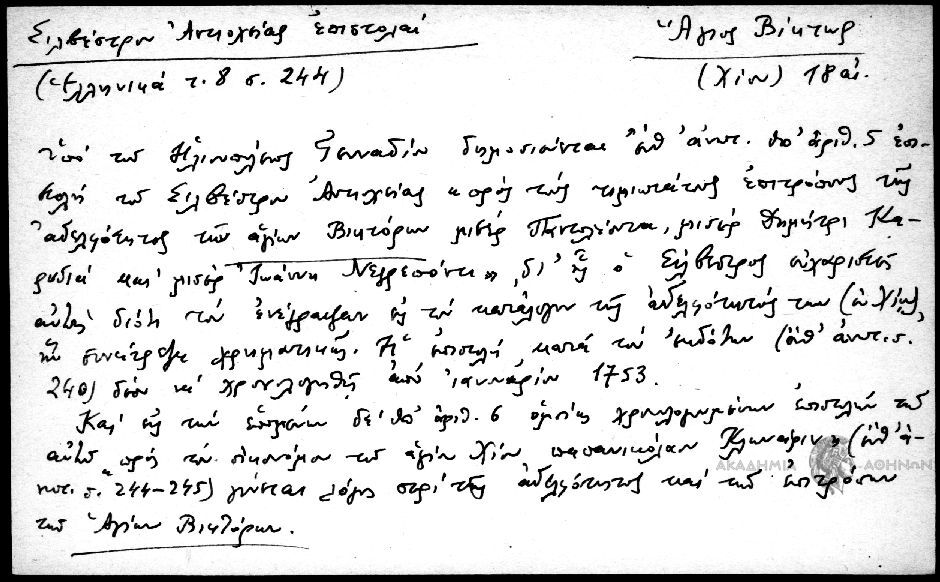 Σιλβέστρου Ἀντιοχείας ἐπιστολαί
Ἅγιος Βίκτωρ
(Ἑλληνικά τ. 8 σ. 244)
(Χίου) 18 αἰ.
Ὑπό τοῦ Ἡλιουπόλεως Γενναδίου δημοσιεύεται ἔνθ' ἀνωτ. ὑπ' ἀριθ. 5 ἐπι-
στολή τοῦ Σιλβέστρου Ἀντιοχείας "πρός τούς τιμιωτάτους ἐπιτρόπους τῆς
ἀδελφότητος τῶν ἁγίων Βικτόρων μισέρ Παντολέοντα, μισέρ Δημήτρι Κα-
ρυδιά καί μισέρ Ἰωάννη Νεγρεπόντε", δι' ἧς ὁ Σίλβεστρος εὐχαριστεῖ
αὐτούς διότι τόν ἐνέγραψαν εἰς τόν κατάλογον τῆς ἀδελφότητός των (ἐν Χίῳ),
ἥν συνέτρεχε χρηματικῶς. Ἡ ἐπιστολή, κατά τόν ἐκδότην (ἔνθ' ἀνωτ. σ.
240) δέον νά χρονολογηθῇ ἀπό Ἰανουάριον 1753.
Καί εἰς τήν ἑπομένην δέ ὑπ' ἀριθ. 6 ὁμοίως χρονολογουμένην ἐπιστολήν τοῦ
αὐτοῦ "πρός τόν οἰκονόμον τοῦ ἁγίου Χίου παπανικόλαον" (ἔνθ' ἀ-
νωτ. σ. 244-245) γίνεται λόγος περί τῆς ἀδελφότητος καί τῶν ἐπιτρόπων
τῶν Ἁγίων Βικτόρων.
ΑΚΑΔΗΜΙΑ ΑΘΗΝΩΝ